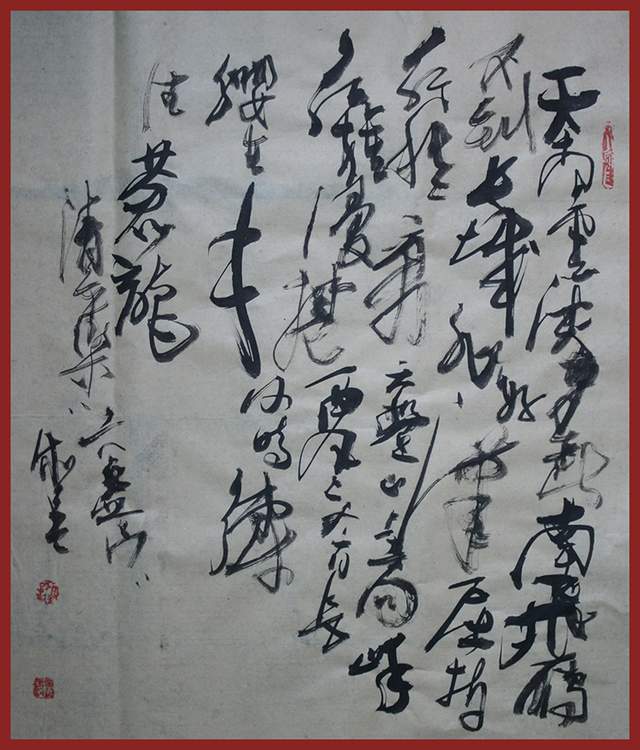 天高雲淡望斷南飛鴈
不到長城非好漢屈指
行程二万六盤山上高峰
紅旗漫捲西風今日长
纓在手何時縛
住蒼龍
清平樂六盘山